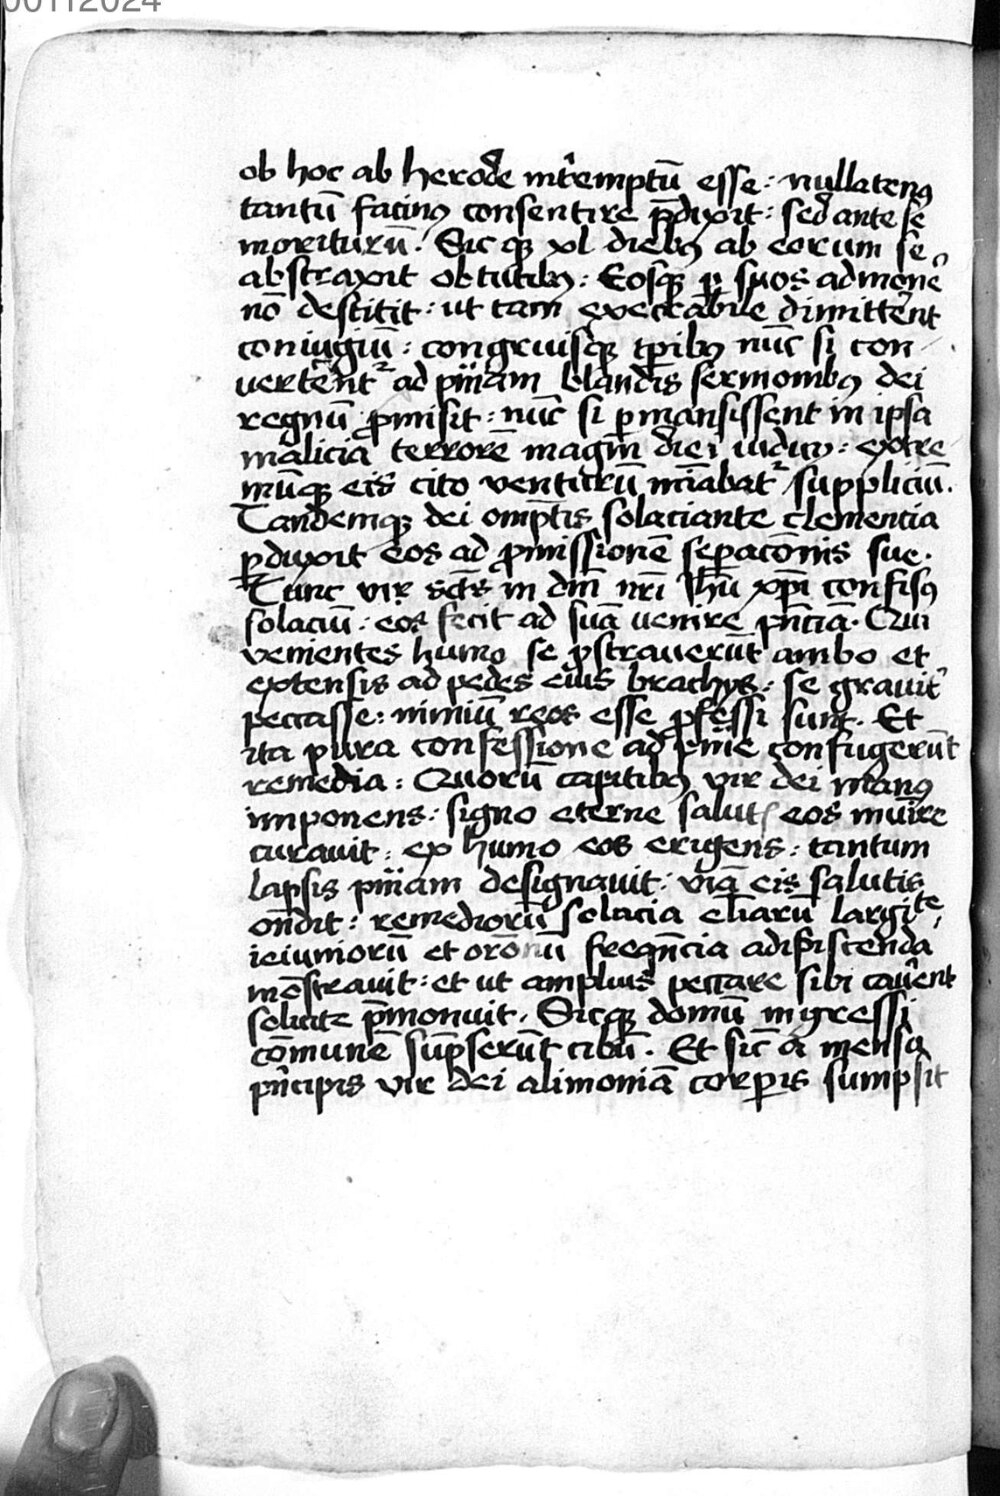 00112024
ob hoc ab herode int̉emptū esse : nullatenꝰ
tantū facinꝰ consentire p̄dixit : sed ante se
moriturū . Sic qꝫ xl diebꝰ ab eorum se
abstraxit obtutibꝰ : Eosqꝫ ꝑ suos admone͛
nō destitit : ut tam execrabile dimitte͛nt
coniugiū : congruisqꝫ tꝑibꝰ nūc si con
verte͛nt᷑ ad pn̄iam blandis sermonibꝰ dei
regnū ꝓmisit : nūc si ꝑmansissent in ipsa
malicia terrorē magni diei iudicij : extre
mūqꝫ eis cito venturū minabat᷑ suppliciū .
Tandemqꝫ dei omp̄tis solaciante clemencia
ꝑduxit eos ad ꝓmissionē seꝑacōnis sue .
Tunc vir sct̄s in dn̄i nr̄i ih̄u xp̄i confisꝰ
solaciū : eos fecit ad suā venire pn̄ciā . Qui
venientes humo se ꝓstraverūt ambo et
extensis ad pedes eius brachijs : se gravit͛
peccasse : nimiū reos esse ꝓfessi sunt . Et
ita pura confessione ad pn̄ie confugerūt
remedia : Quorū capitibꝰ vir dei manꝰ
imponens : signo eterne salutꝭ eos mu͛ire
curavit : ex humo eos erigens : tantum
lapsis pn̄iam designavit : viā eis salutis
on̄dit : remediorū solacia el̄iarū largite͛
ieiuniorū et orōnū freqn̄cia adipiscenda
mōstravit : et ut amplius peccare sibi cave͛nt
solicite p̄monuit . Sicqꝫ domū ingressi
cōmunē sūpserūt cibū . Et sic ī mensa
pn͛cipis vir dei alimoniā corꝑis sumpsit